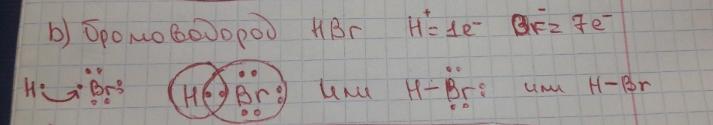 b) бромоводород HBr H⁺=1e⁻ Br⁻=7e⁻
H· ·Br: H:Br: или H–Br: или H–Br